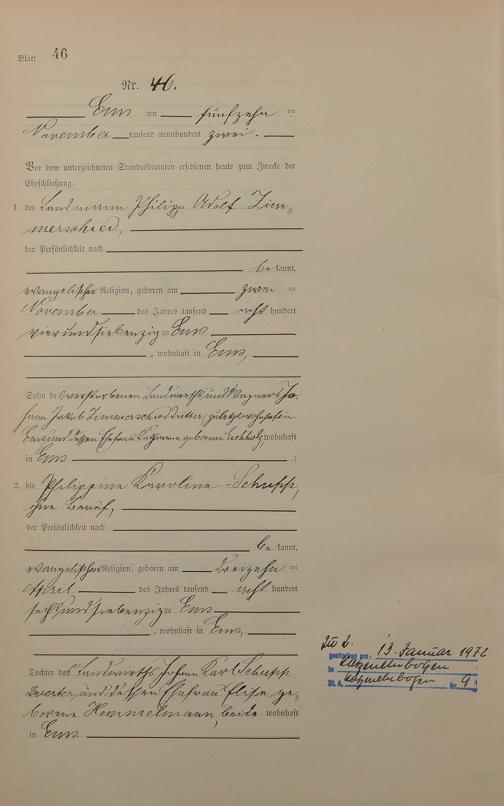 Blatt 46
Nr. 46.
Ems am fünfzehn ten
November tausend neunhundert zwei.
Vor dem unterzeichneten Standesbeamten erschienen heute zum Zwecke der
Eheschließung:
1. der Landmann Philipp Adolf Zim„
merschied,
der Persönlichkeit nach
be kannt,
evangelischer Religion, geboren am zwei ten
November des Jahres tausend acht hundert
vierundsiebenzig zu Ems
, wohnhaft in Ems,
Sohn des verstorbenen Landwirths und Wagners Jo-
hann Jakob Zimmerschied dritter, zuletzt wohnhaft in
Ems und dessen Ehefrau Katharine geborene wohnhaft
in Ems ;
2. die Philippine Karoline Schupp,
ohne Beruf,
der Persönlichkeit nach
be kannt,
evangelischer Religion, geboren am dreizehn ten
April des Jahres tausend acht hundert
sechsundsiebenzig zu Ems
, wohnhaft in Ems,
Tochter des Landwirths Johann Karl Schupp
zweiter und dessen Ehefrau Elise ge-
borene Hemmelmann, beide wohnhaft
in Ems
Zu 2.
gestorben am: 13. Januar 1972
in Katzenelnbogen
St.A. Katzenelnbogen Nr. 9